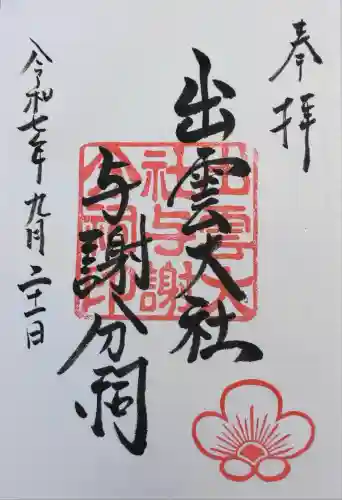 奉拝
出雲大社
与謝分祠
令和七年九月二十一日
出雲大
社与謝
分祠印